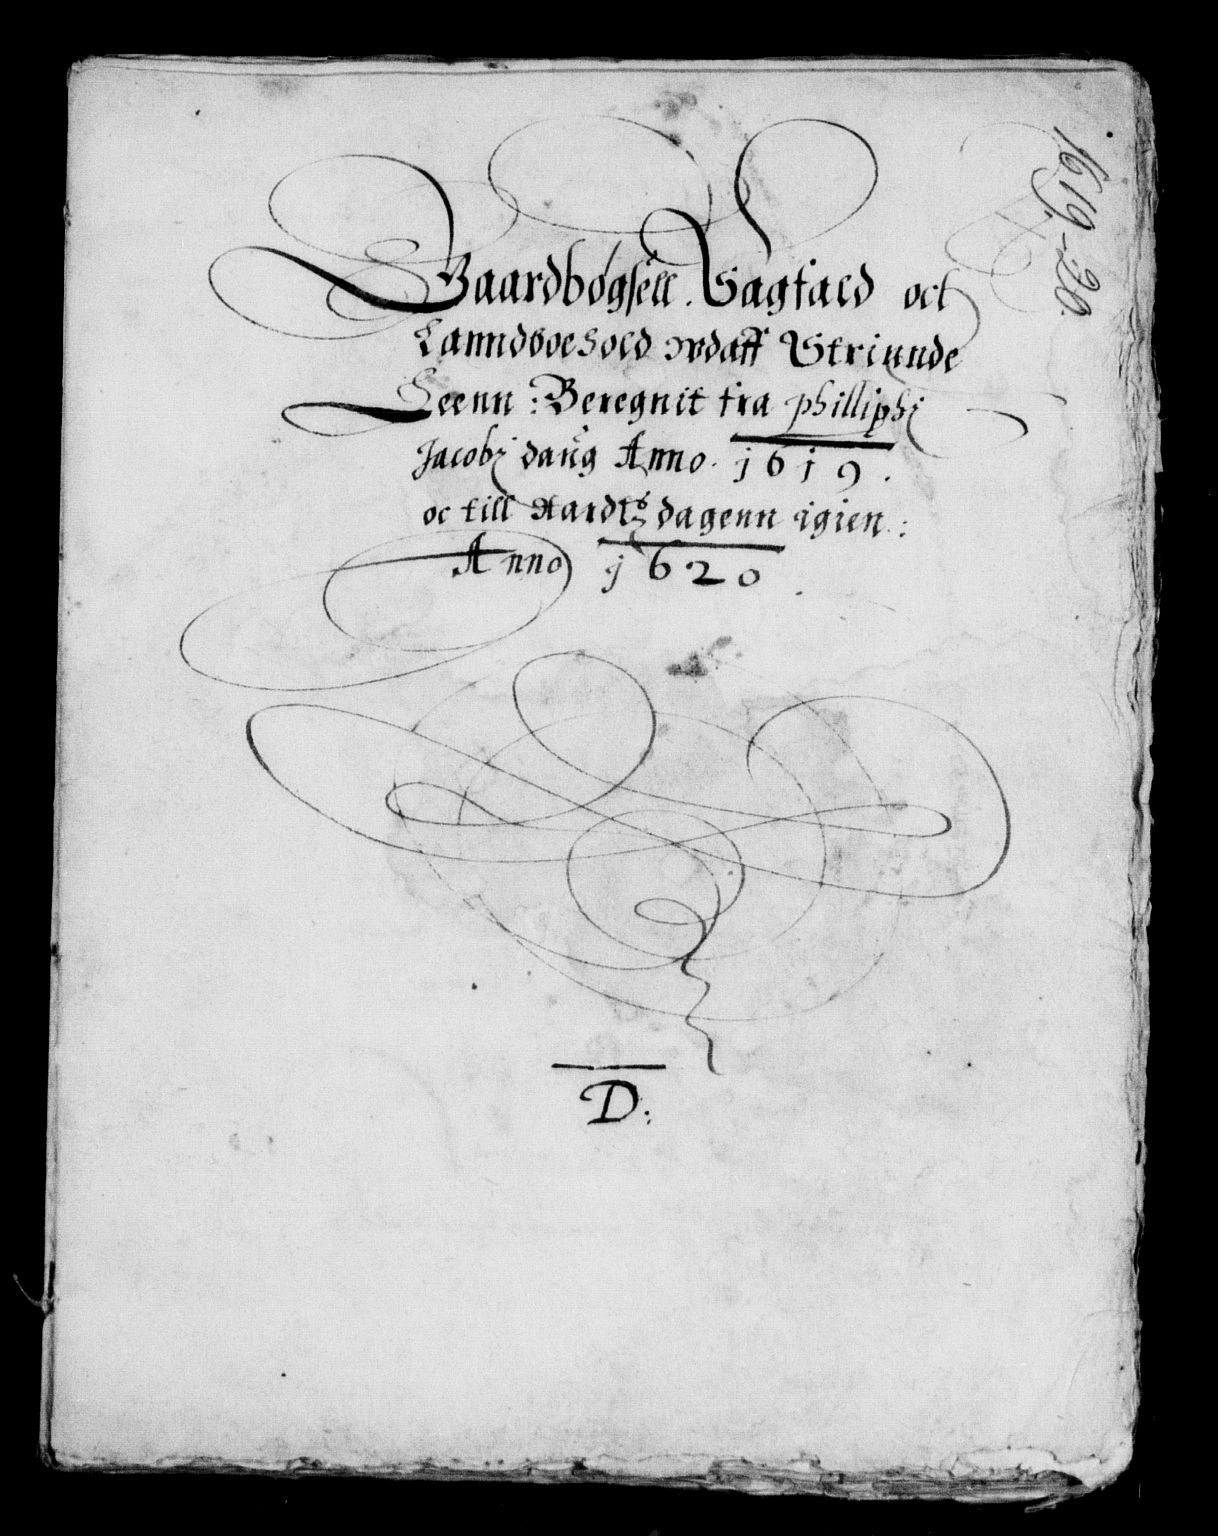 1619-20.
Gaardbøgsell. Sagfald oct
Lanndboehold wdaff Striinnde
Leenn: Beregnit fra philliphi
Jacobi daug Anno. 1619.
oc till Aardtz dagenn igien:
Anno 1620.
D: